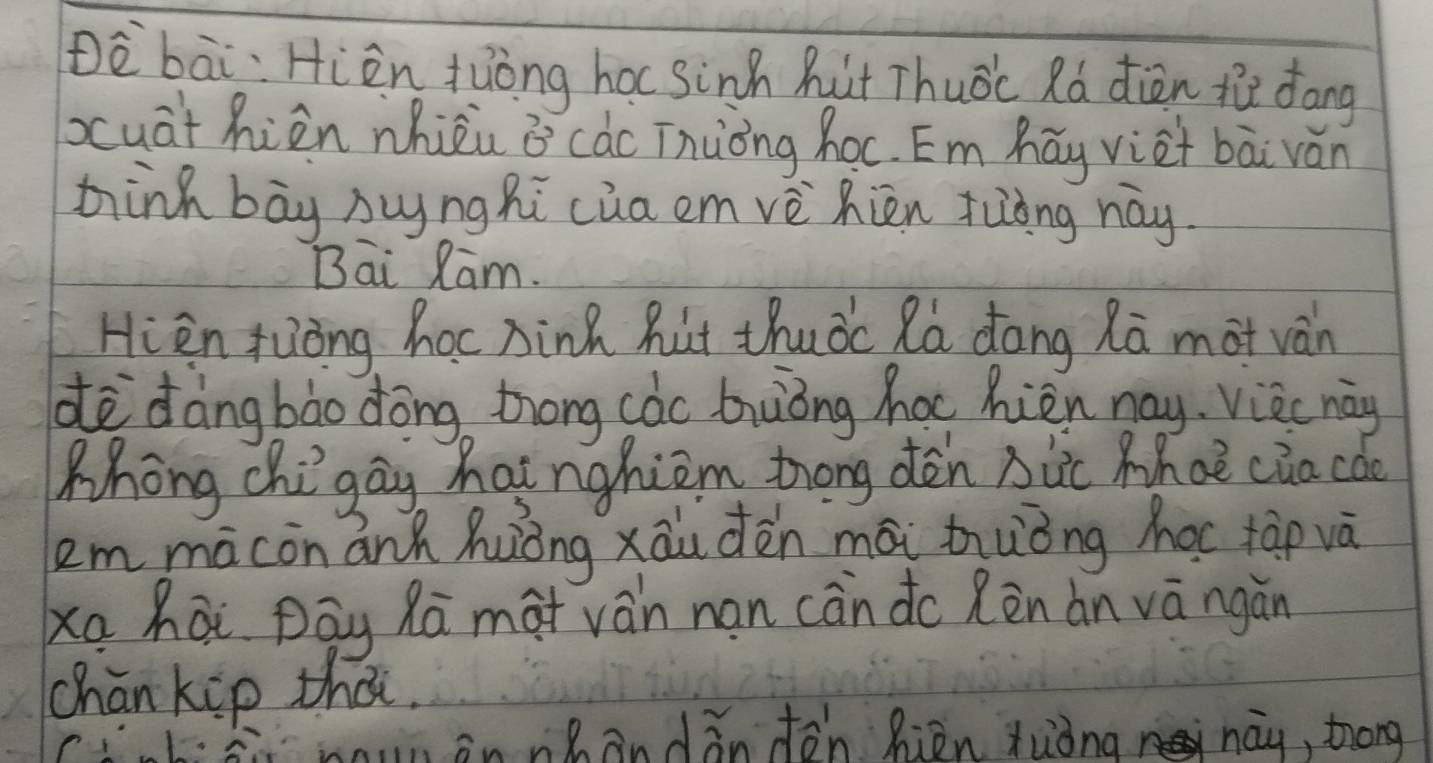 Đề bài: Hiện tượng học sinh hút Thuốc lá điện tử đang
xuất hiện nhiều ở các Trường học. Em hãy viết bài văn
trình bày suy nghĩ của em về hiện tượng này.
Bài làm.
Hiện tượng học sinh hút thuốc lá đang là một vấn
đề đáng báo động trong các trường học hiện nay. Việc này
không chỉ gây hại nghiêm trọng đến sức khoẻ của các
em mà còn ảnh hưởng xấu đến môi trường học tập và
xạ hội. Đây là một vấn nạn cần đc lên án và ngăn
chặn kịp thời.
Có nhiều nguyên nhân dẫn đến hiện tượng này, trong